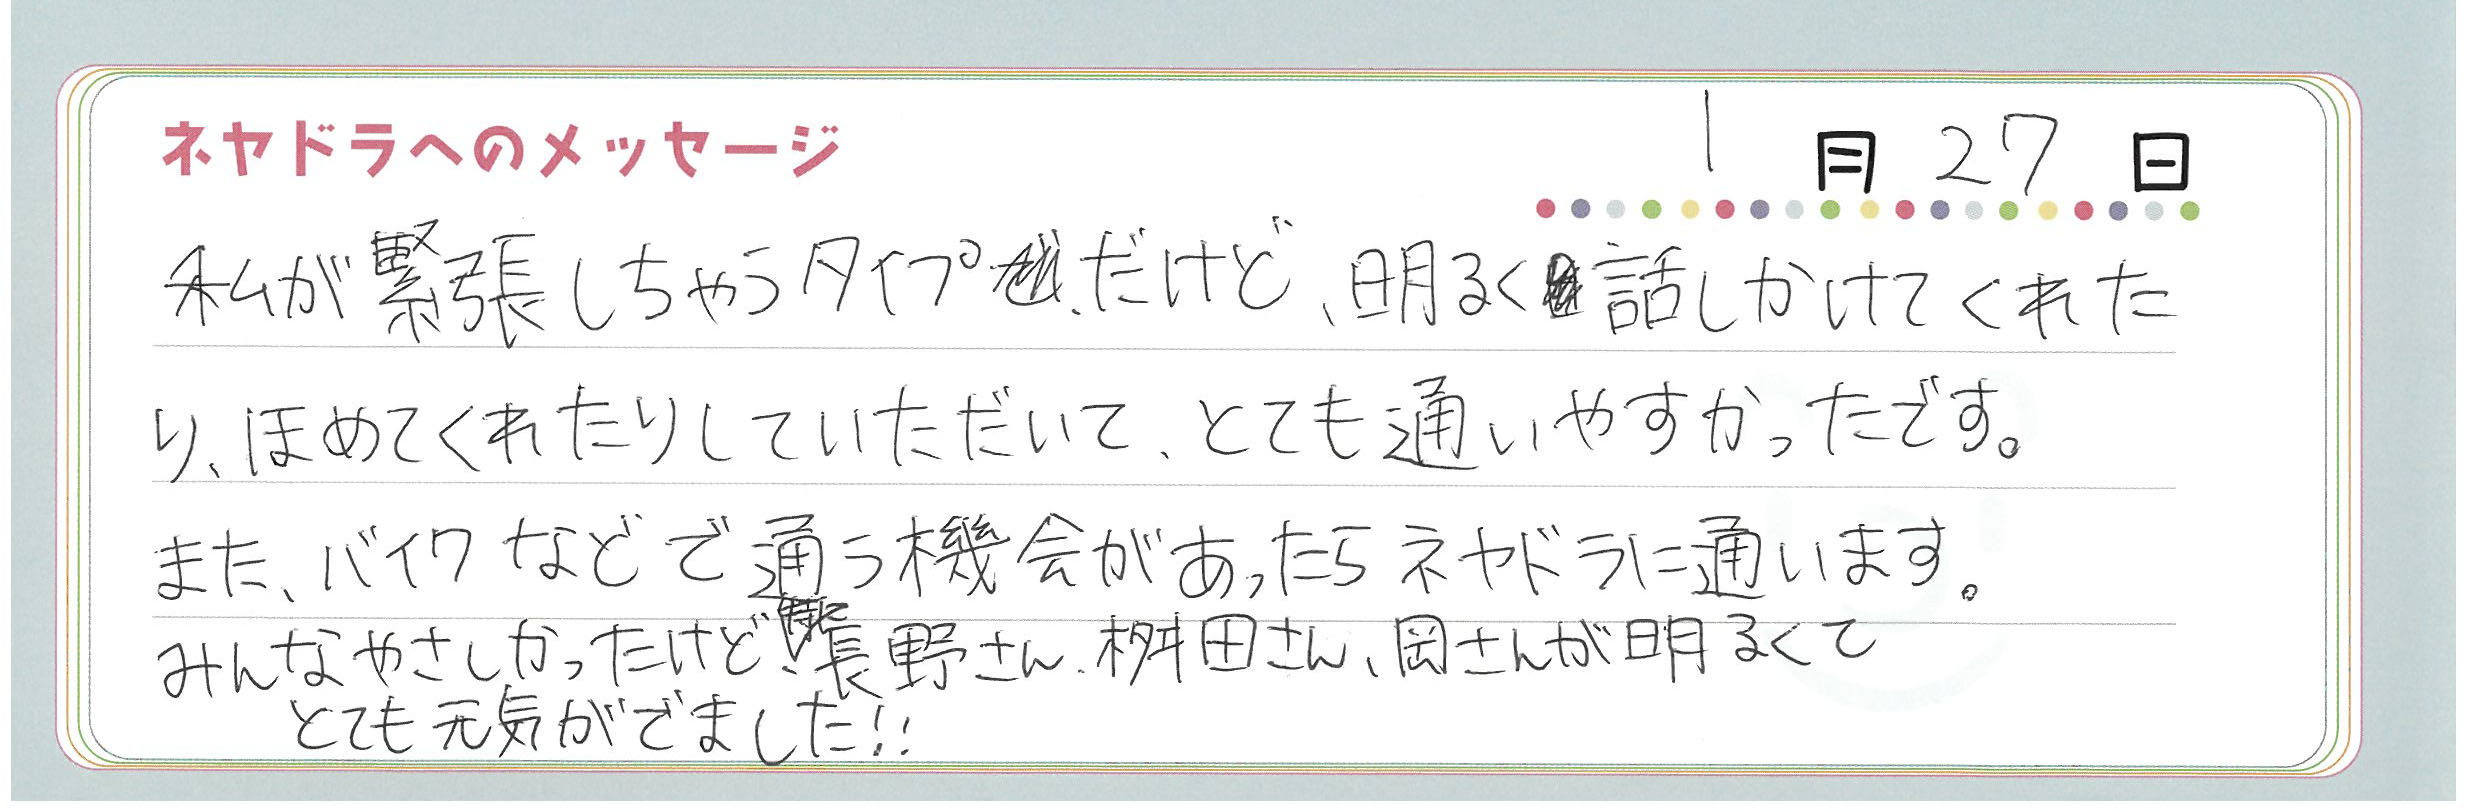 ネヤドラへのメッセージ 1月27日
私が緊張しちゃうタイプだけど、明るく話しかけてくれた
り、ほめてくれたりしていただいて、とても通いやすかったです。
また、バイクなどで通う機会があったらネヤドラに通います。
みんなやさしかったけど、長野さん、桝田さん、岡さんが明るくて
とても元気がでました!!